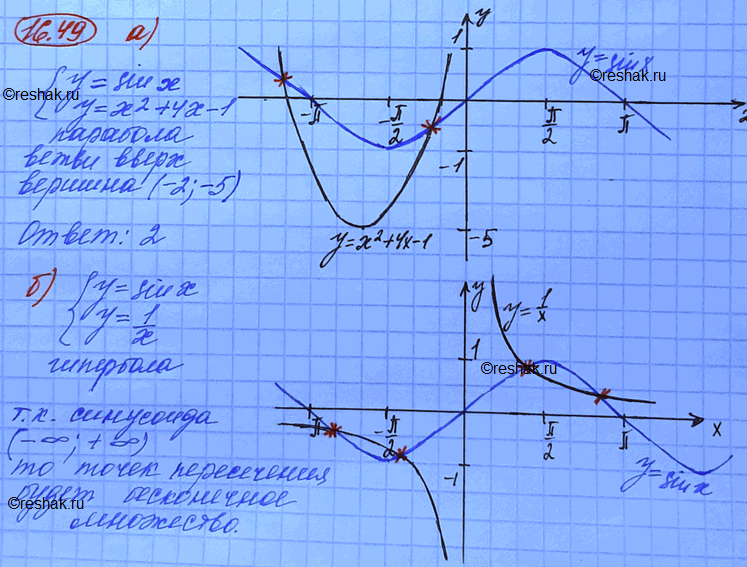 16.49 а)
y = sin x
y = x² + 4x - 1
парабола
ветви вверх
вершина (-2; -5)
Ответ: 2
y
1
y = sin x
-π
-π/2
π/2
π
-1
-5
y = x² + 4x - 1
б)
y = sin x
y = 1/x
гипербола
т.к. синусоида
(-∞; +∞)
то точек пересечения
будет бесконечное
множество.
y
y = 1/x
1
π
-π/2
π/2
π
x
-1
y = sin x
©reshak.ru
©reshak.ru
©reshak.ru
©reshak.ru